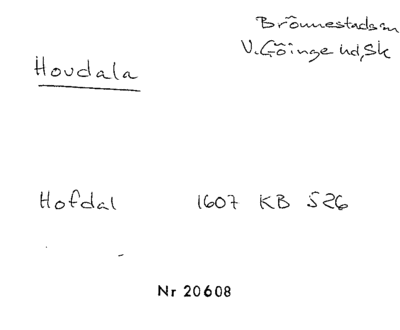 Brönnestads sn
V. Göinge hd, Sk
Hovdala
Hofdal 1607 KB 526
Nr 20608